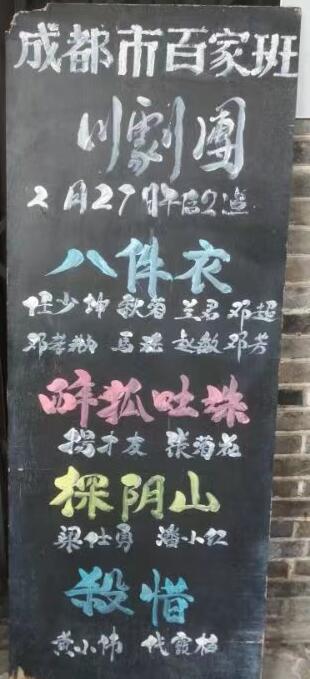 成都市百家班
川劇團
2月27日午后2点
八件衣
任少坤 敏菊 兰君 邓超
邓孝 马 赵敏 邓芳
醉狐吐珠
杨才友 张菊花
探阴山
梁仕勇 潘小红
殺惜
黄小伟 代霞